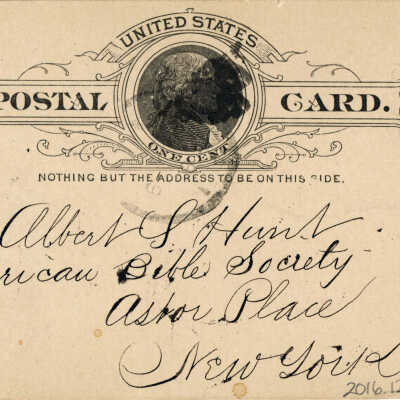 UNITED STATES
POSTAL CARD.
ONE CENT
NOTHING BUT THE ADDRESS TO BE ON THIS SIDE.
Albert S Hunt
rican Bible Society
Astor Place
New York
2016.12